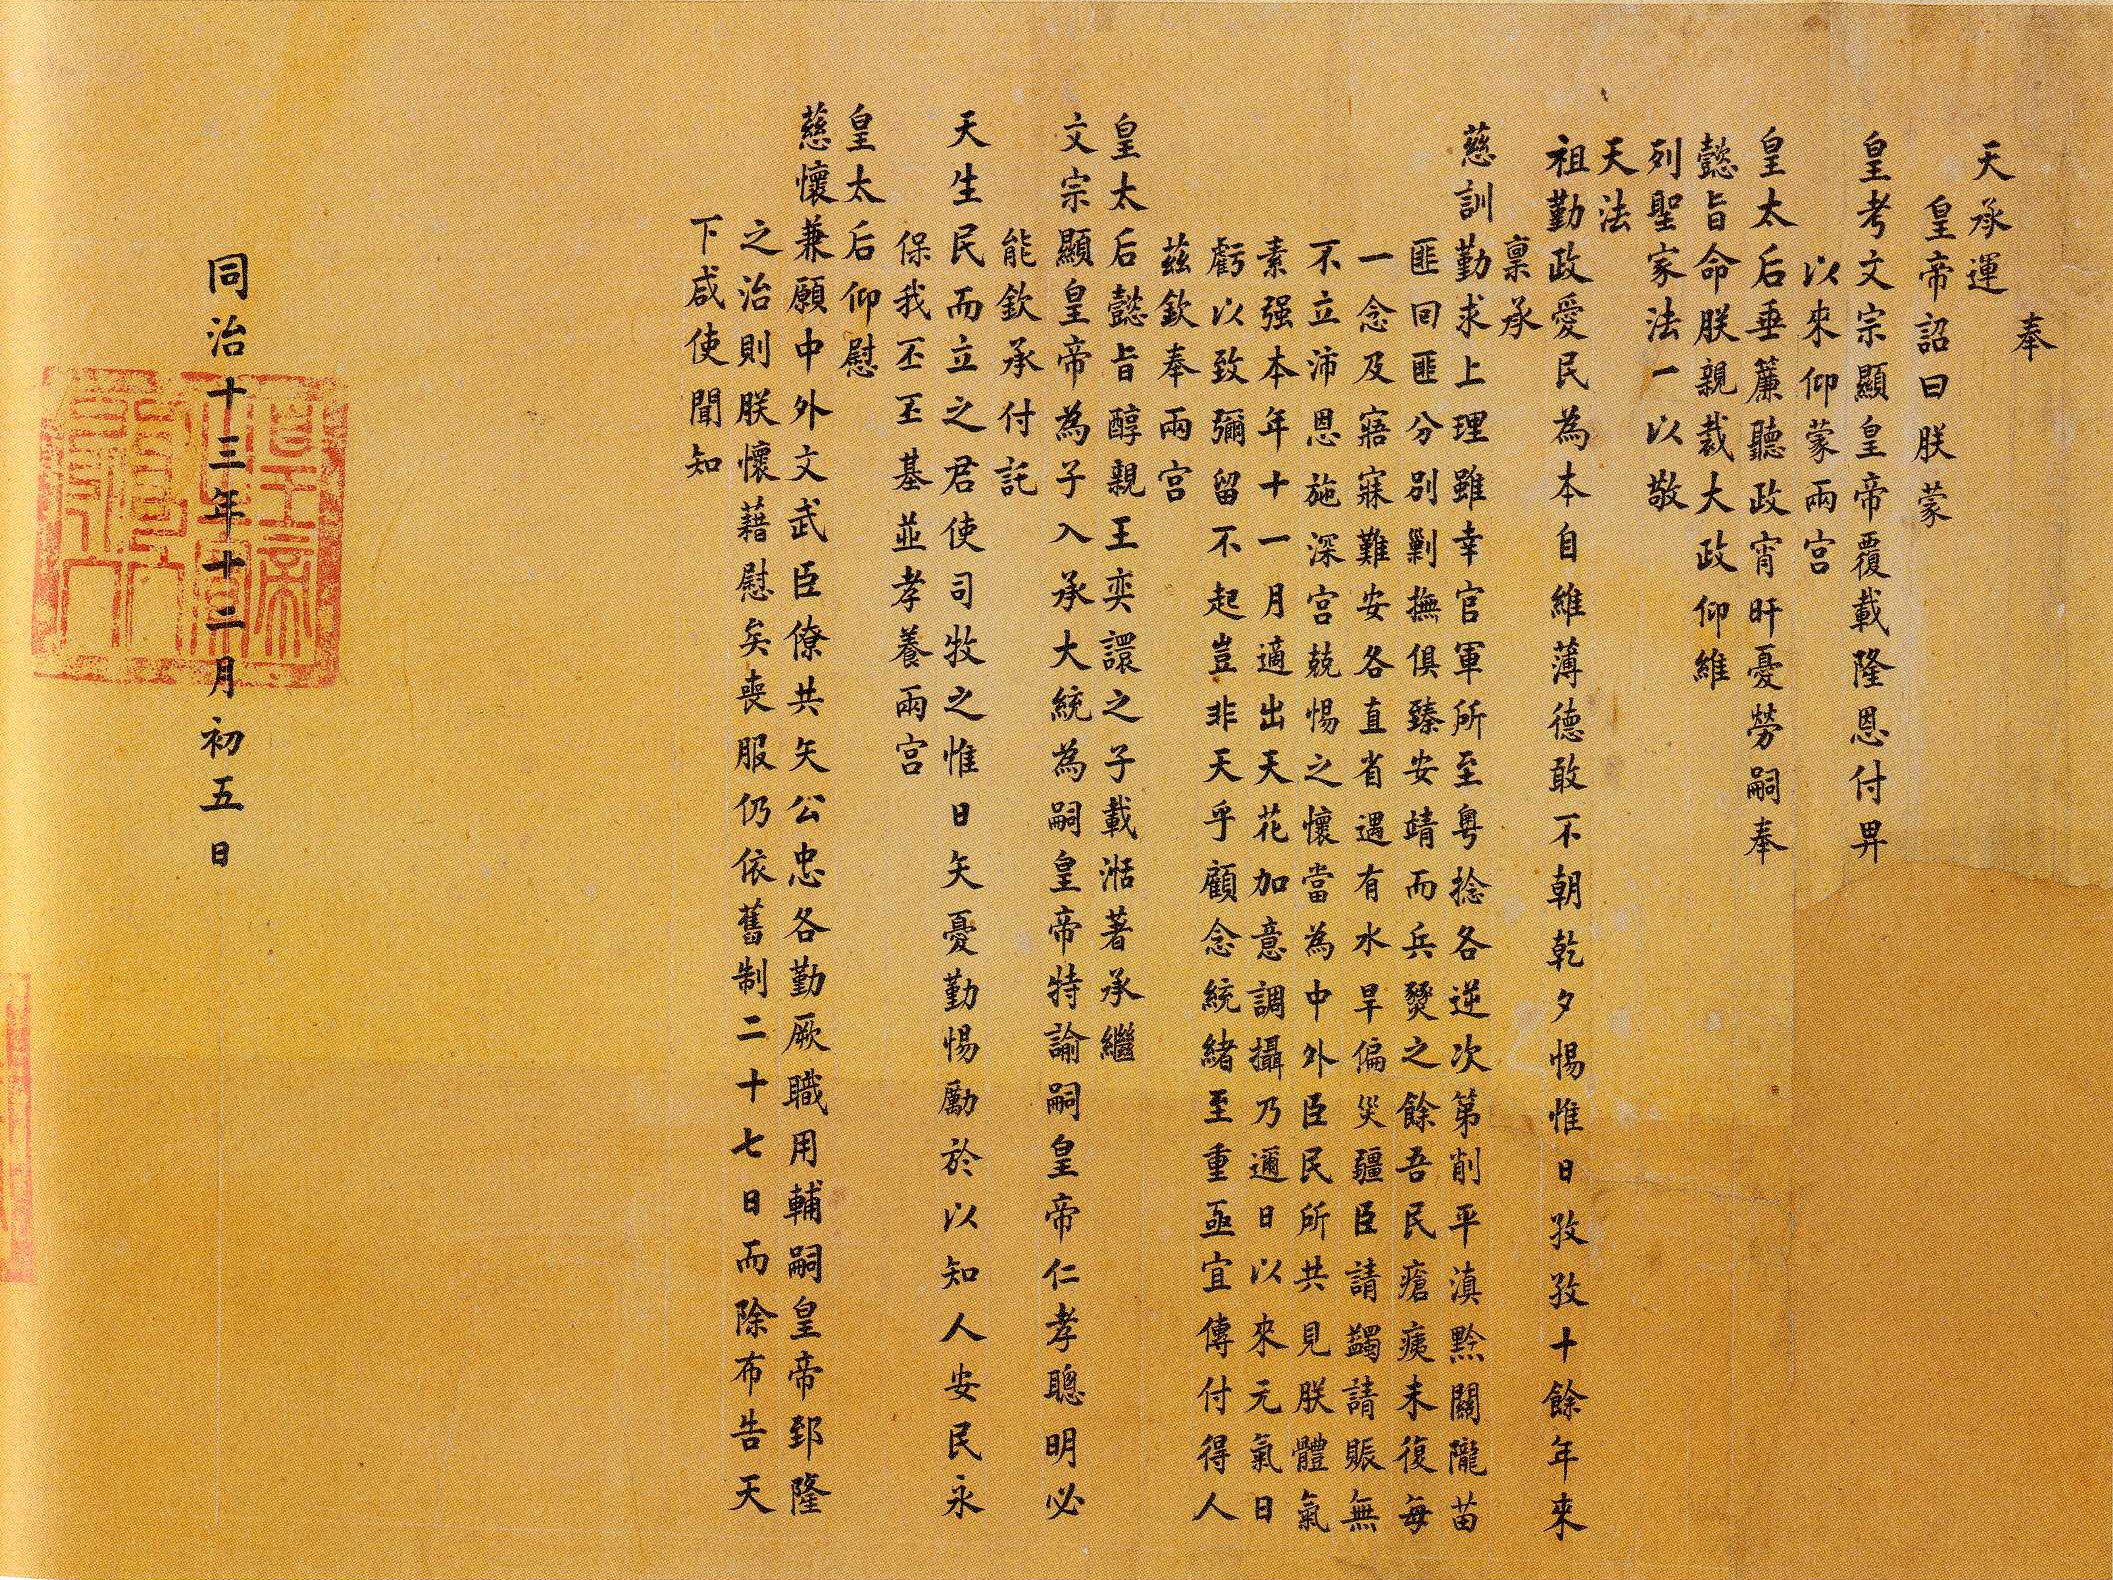 奉
天承運
皇帝詔曰朕蒙
皇考文宗顯皇帝覆載隆恩付畀
以來仰蒙兩宮
皇太后垂簾聽政宵旰憂勞嗣奉
懿旨命朕親裁大政仰維
列聖家法一以敬
天法
祖勤政愛民為本自維薄德敢不朝乾夕惕惟日孜孜十餘年來
稟承
慈訓勤求上理雖幸官軍所至粵捻各逆次第削平滇黔關隴苗
匪回匪分別剿撫俱臻安靖而兵燹之餘吾民瘡痍未復每
一念及寤寐難安各直省遇有水旱偏災疆臣請蠲請賑無
不立沛恩施深宮兢惕之懷當為中外臣民所共見朕體氣
素强本年十一月適出天花加意調攝乃邇日以來元氣日
虧以致彌留不起豈非天乎顧念統緒至重亟宜傳付得人
茲欽奉兩宮
皇太后懿旨醇親王奕譞之子載湉著承繼
文宗顯皇帝為子入承大統為嗣皇帝特諭嗣皇帝仁孝聰明必
能欽承付託
天生民而立之君使司牧之惟日矢憂勤惕勵於以知人安民永
保我丕丕基並孝養兩宮
皇太后仰慰
慈懷兼願中外文武臣僚共矢公忠各勤厥職用輔嗣皇帝郅隆
之治則朕懷藉慰矣喪服仍依舊制二十七日而除布告天
下咸使聞知
同治十三年十二月初五日